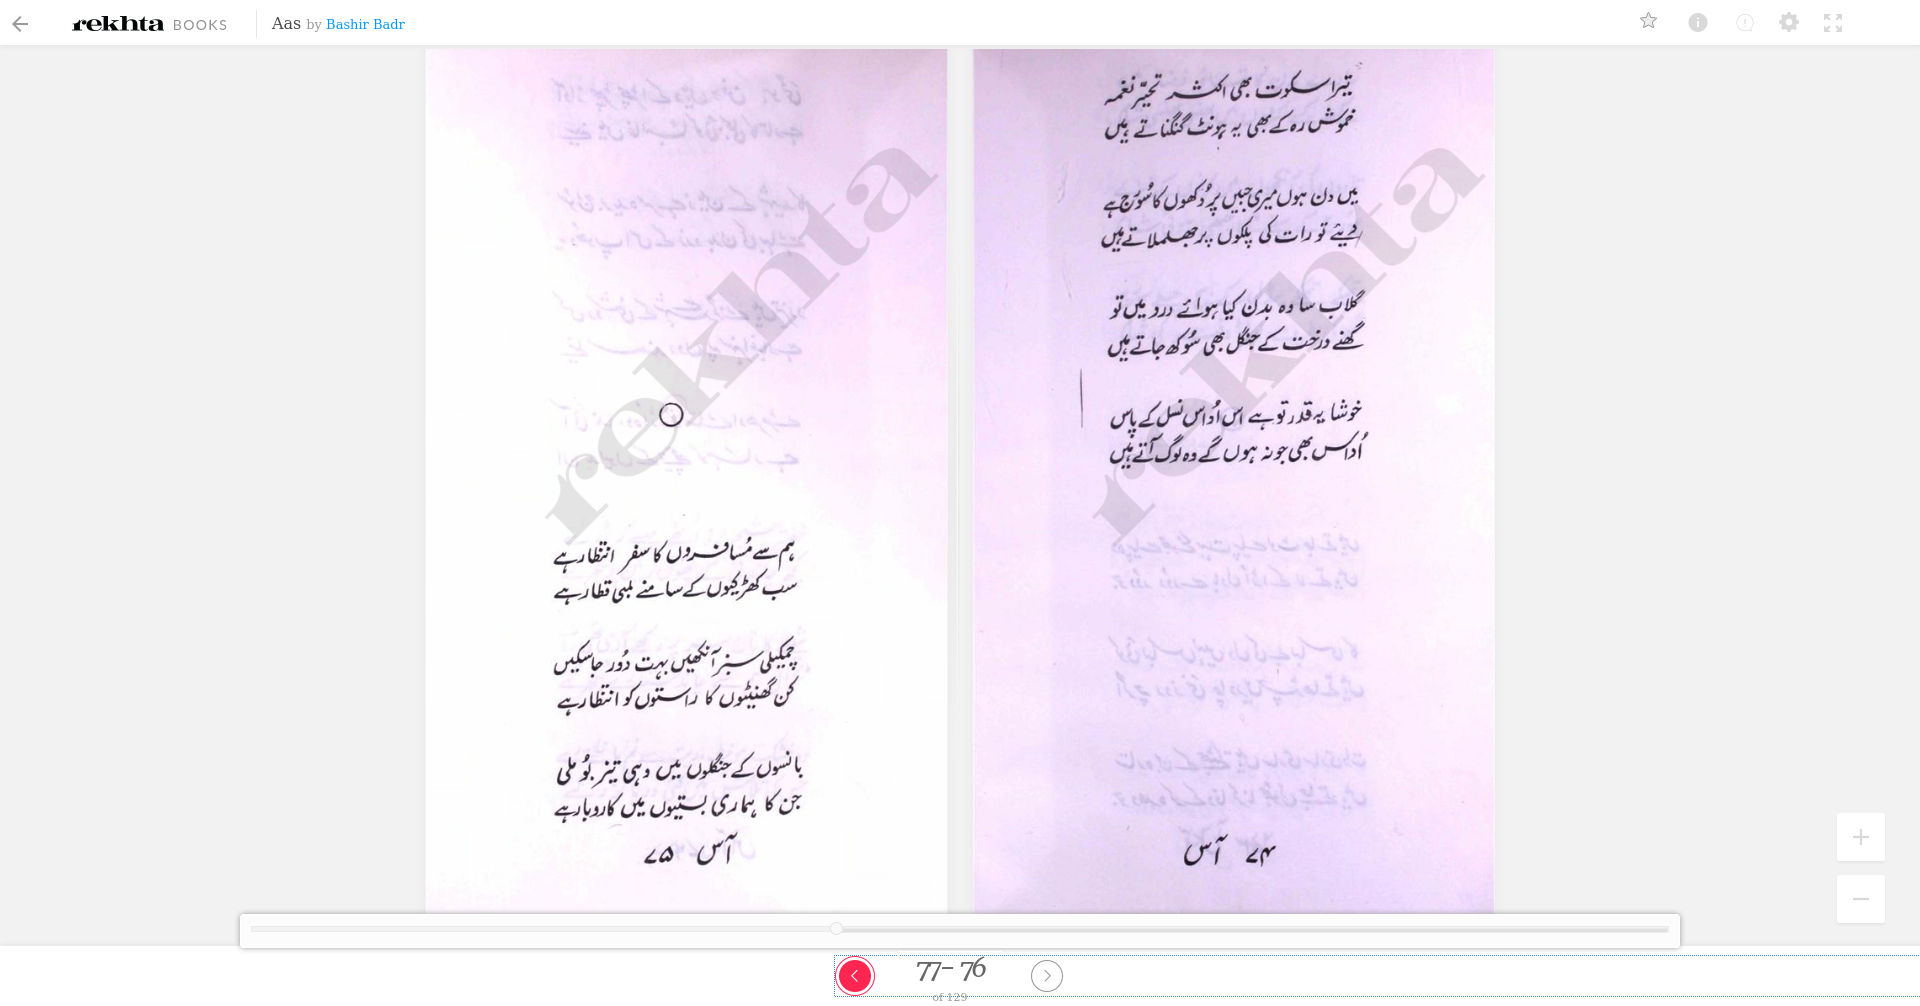 rekhta BOOKS Aas by Bashir Badr
تیرا سکوت بھی اکثر تحیّرِ نغمہ
خموش رہ کے بھی یہ ہونٹ گنگناتے ہیں
میں دن ہوں میری جبیں پر دُکھوں کا سُورج ہے
دیئے تو رات کی پلکوں پر جھلملاتے ہیں
گلاب سا وہ بدن کیا ہوائے درد میں تو
گھنے درخت کے جنگل بھی سُوکھ جاتے ہیں
خوشا یہ قدر تو ہے اس اُداس نسل کے پاس
اُداس بھی جو نہ ہوں گے وہ لوگ آتے ہیں
۷۴ آس
ہم سے مُسافروں کا سفر انتظار ہے
سب کھڑکیوں کے سامنے لمبی قطار ہے
چمکیلی سبز آنکھیں بہت دُور جا سکیں
کن گھنٹیوں کا راستوں کو انتظار ہے
بانسوں کے جنگلوں میں وہی تیز بُو ملی
جن کا ہماری بستیوں میں کاروبار ہے
آس ۷۵
rekhta
rekhta
77- 76
of 129